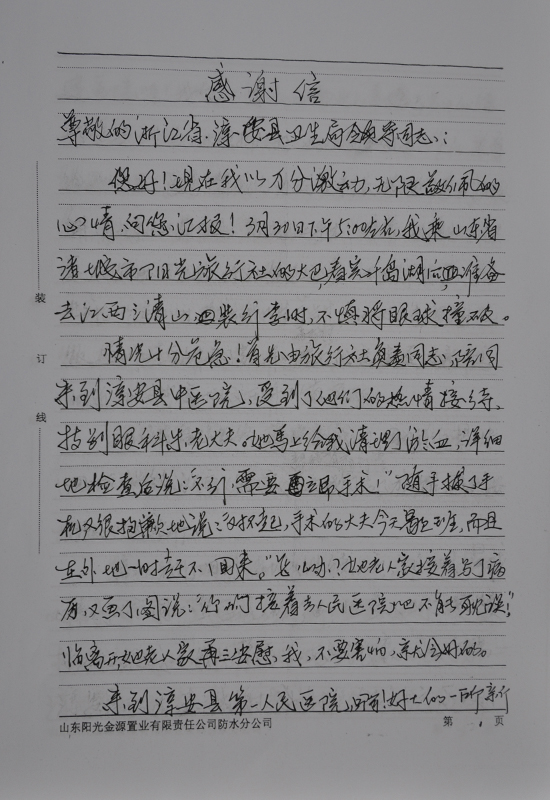 感谢信
尊敬的浙江省、淳安县卫生局领导同志:
您好!现在我以万分激动,无限敬佩的
心情,向您汇报!3月30日下午5:00左右,我乘山东省
诸城市阳光旅行社的大巴,看完千岛湖后,准备
去江西三清山,装行李时,不慎将眼球撞破。
情况十分危急!首先由旅行社负责同志,陪同
来到淳安县中医院,受到了他们的热情接待,
特别眼科朱老大夫,她马上给我清理了淤血,详细
地检查后说:不行,需要立即手术!"随手摸了手
机又很抱歉地说:对不起,手术的大夫今天歇班,而且
在外地一时赶不回来。"怎么办?她老人家接着写了病
历,又画了图说:"你们接着去人民医院吧不能耽误!"
临离开她老人家再三安慰,我,不要害怕,就会好的。
来到淳安县第一人民医院,好大的一所
装
订
线
山东阳光金源置业有限责任公司防水分公司
第 1 页